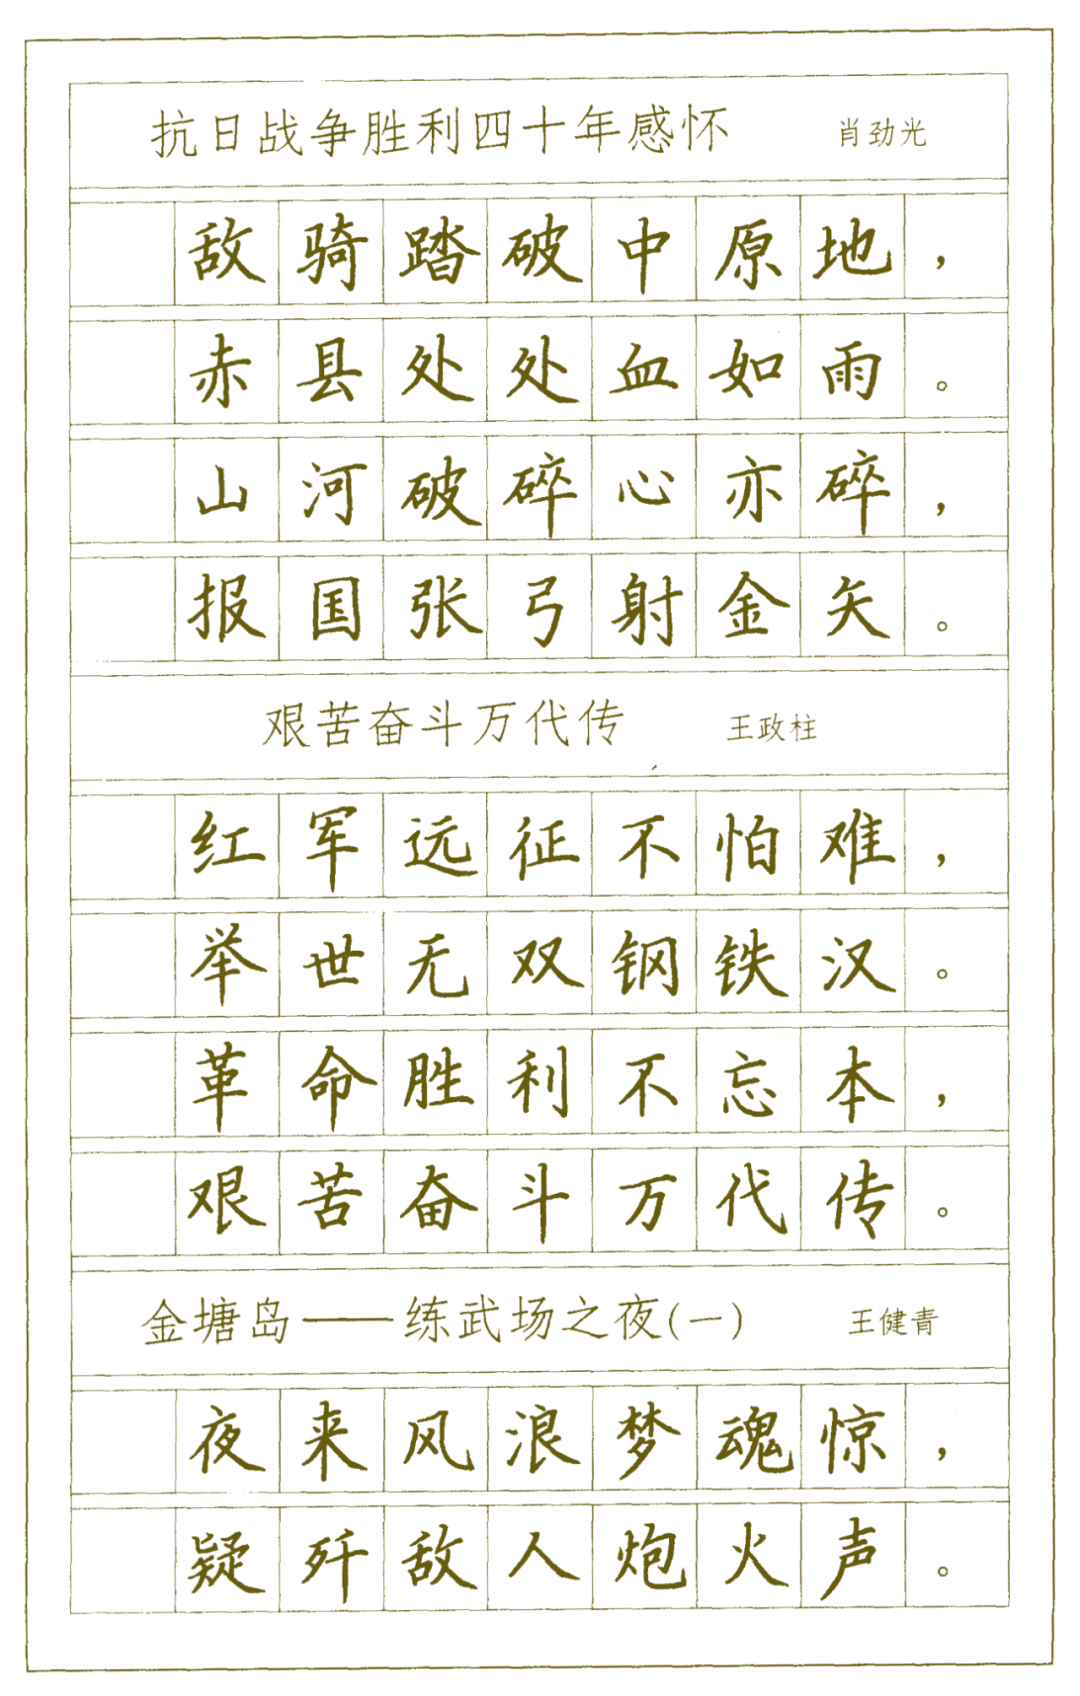 抗日战争胜利四十年感怀 肖劲光
敌骑踏破中原地，
赤县处处血如雨。
山河破碎心亦碎，
报国张弓射金矢。
艰苦奋斗万代传 王政柱
红军远征不怕难，
举世无双钢铁汉。
革命胜利不忘本，
艰苦奋斗万代传。
金塘岛——练武场之夜(一) 王健青
夜来风浪梦魂惊，
疑歼敌人炮火声。